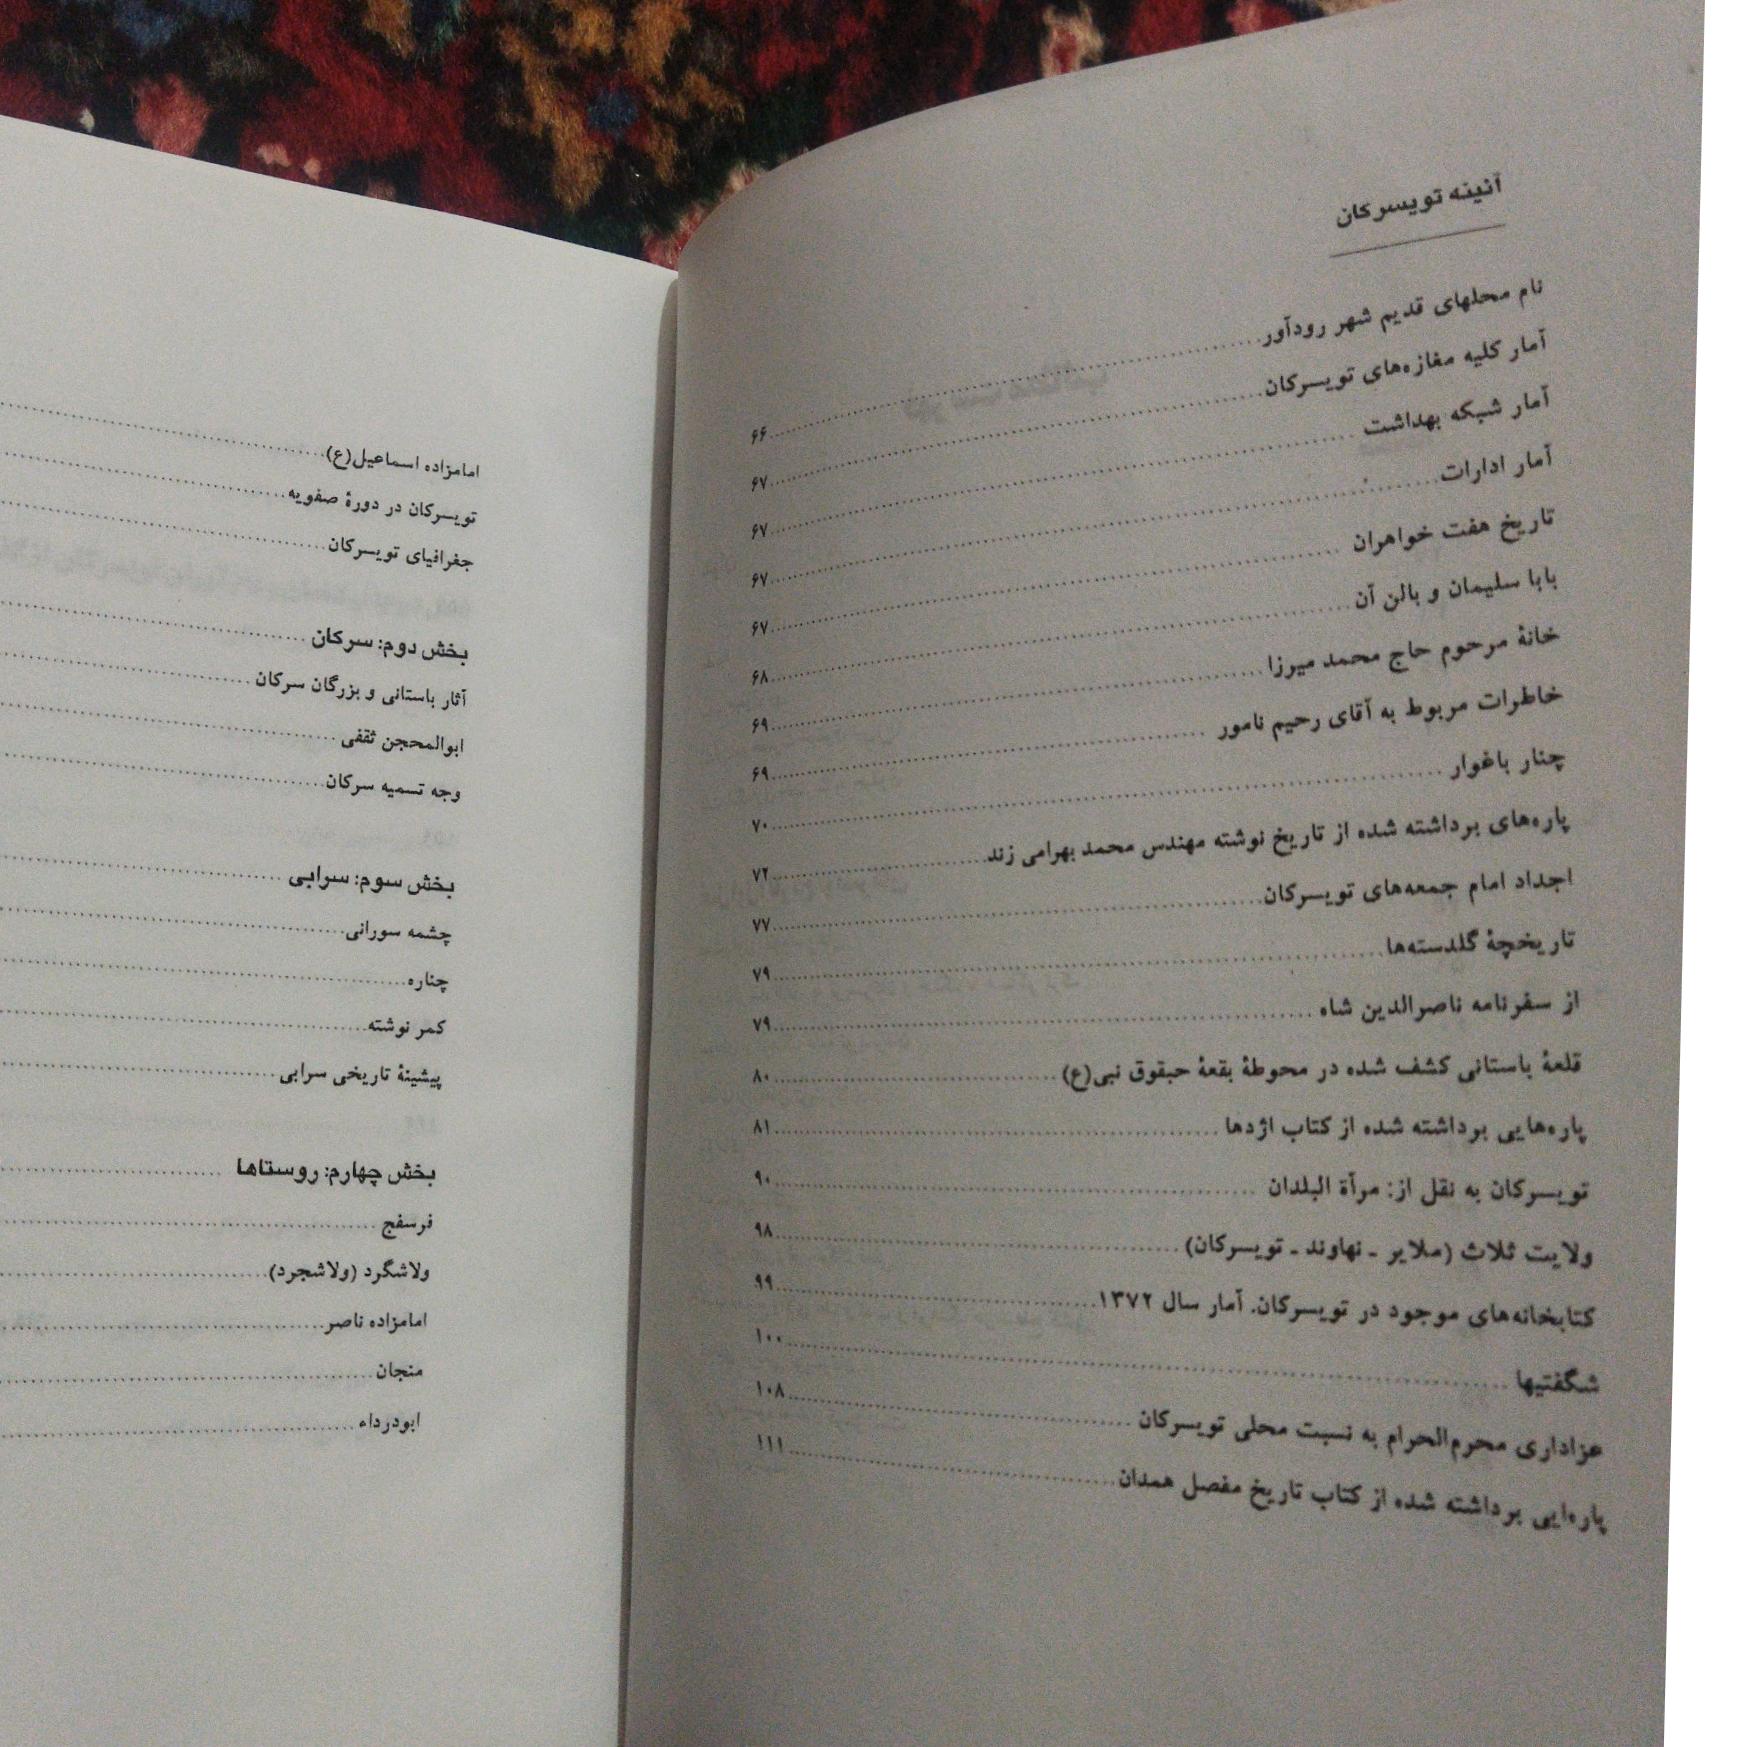 آئینه تویسرکان
نام محلهای قدیم شهر رودآور ۶۶
آمار کلیه مغازه‌های تویسرکان ۶۷
آمار شبکه بهداشت ۶۷
آمار ادارات ۶۷
تاریخ هفت خواهران ۶۷
بابا سلیمان و بالن آن ۶۸
خانهٔ مرحوم حاج محمد میرزا ۶۹
خاطرات مربوط به آقای رحیم نامور ۶۹
چنار باغوار ۷۰
پاره‌های برداشته شده از تاریخ نوشته مهندس محمد بهرامی زند ۷۲
اجداد امام جمعه‌های تویسرکان ۷۷
تاریخچهٔ گلدسته‌ها ۷۹
از سفرنامه ناصرالدین شاه ۷۹
قلعهٔ باستانی کشف شده در محوطهٔ بقعهٔ حبقوق نبی(ع) ۸۰
پاره‌هایی برداشته شده از کتاب اژدها ۸۱
تویسرکان به نقل از: مرآة البلدان ۹۰
ولایت ثلاث (ملایر ـ نهاوند ـ تویسرکان) ۹۸
کتابخانه‌های موجود در تویسرکان. آمار سال ۱۳۷۲ ۹۹
شگفتیها ۱۰۰
عزاداری محرم‌الحرام به نسبت محلی تویسرکان ۱۰۸
پاره‌ایی برداشته شده از کتاب تاریخ مفصل همدان ۱۱۱
امامزاده اسماعیل(ع)
تویسرکان در دورهٔ صفویه
جغرافیای تویسرکان
بخش دوم: سرکان
آثار باستانی و بزرگان سرکان
ابوالمحجن ثقفی
وجه تسمیه سرکان
بخش سوم: سرابی
چشمه سورانی
چناره
کمر نوشته
پیشینهٔ تاریخی سرابی
بخش چهارم: روستاها
فرسفج
ولاشگرد (ولاشجرد)
امامزاده ناصر
منجان
ابودرداء